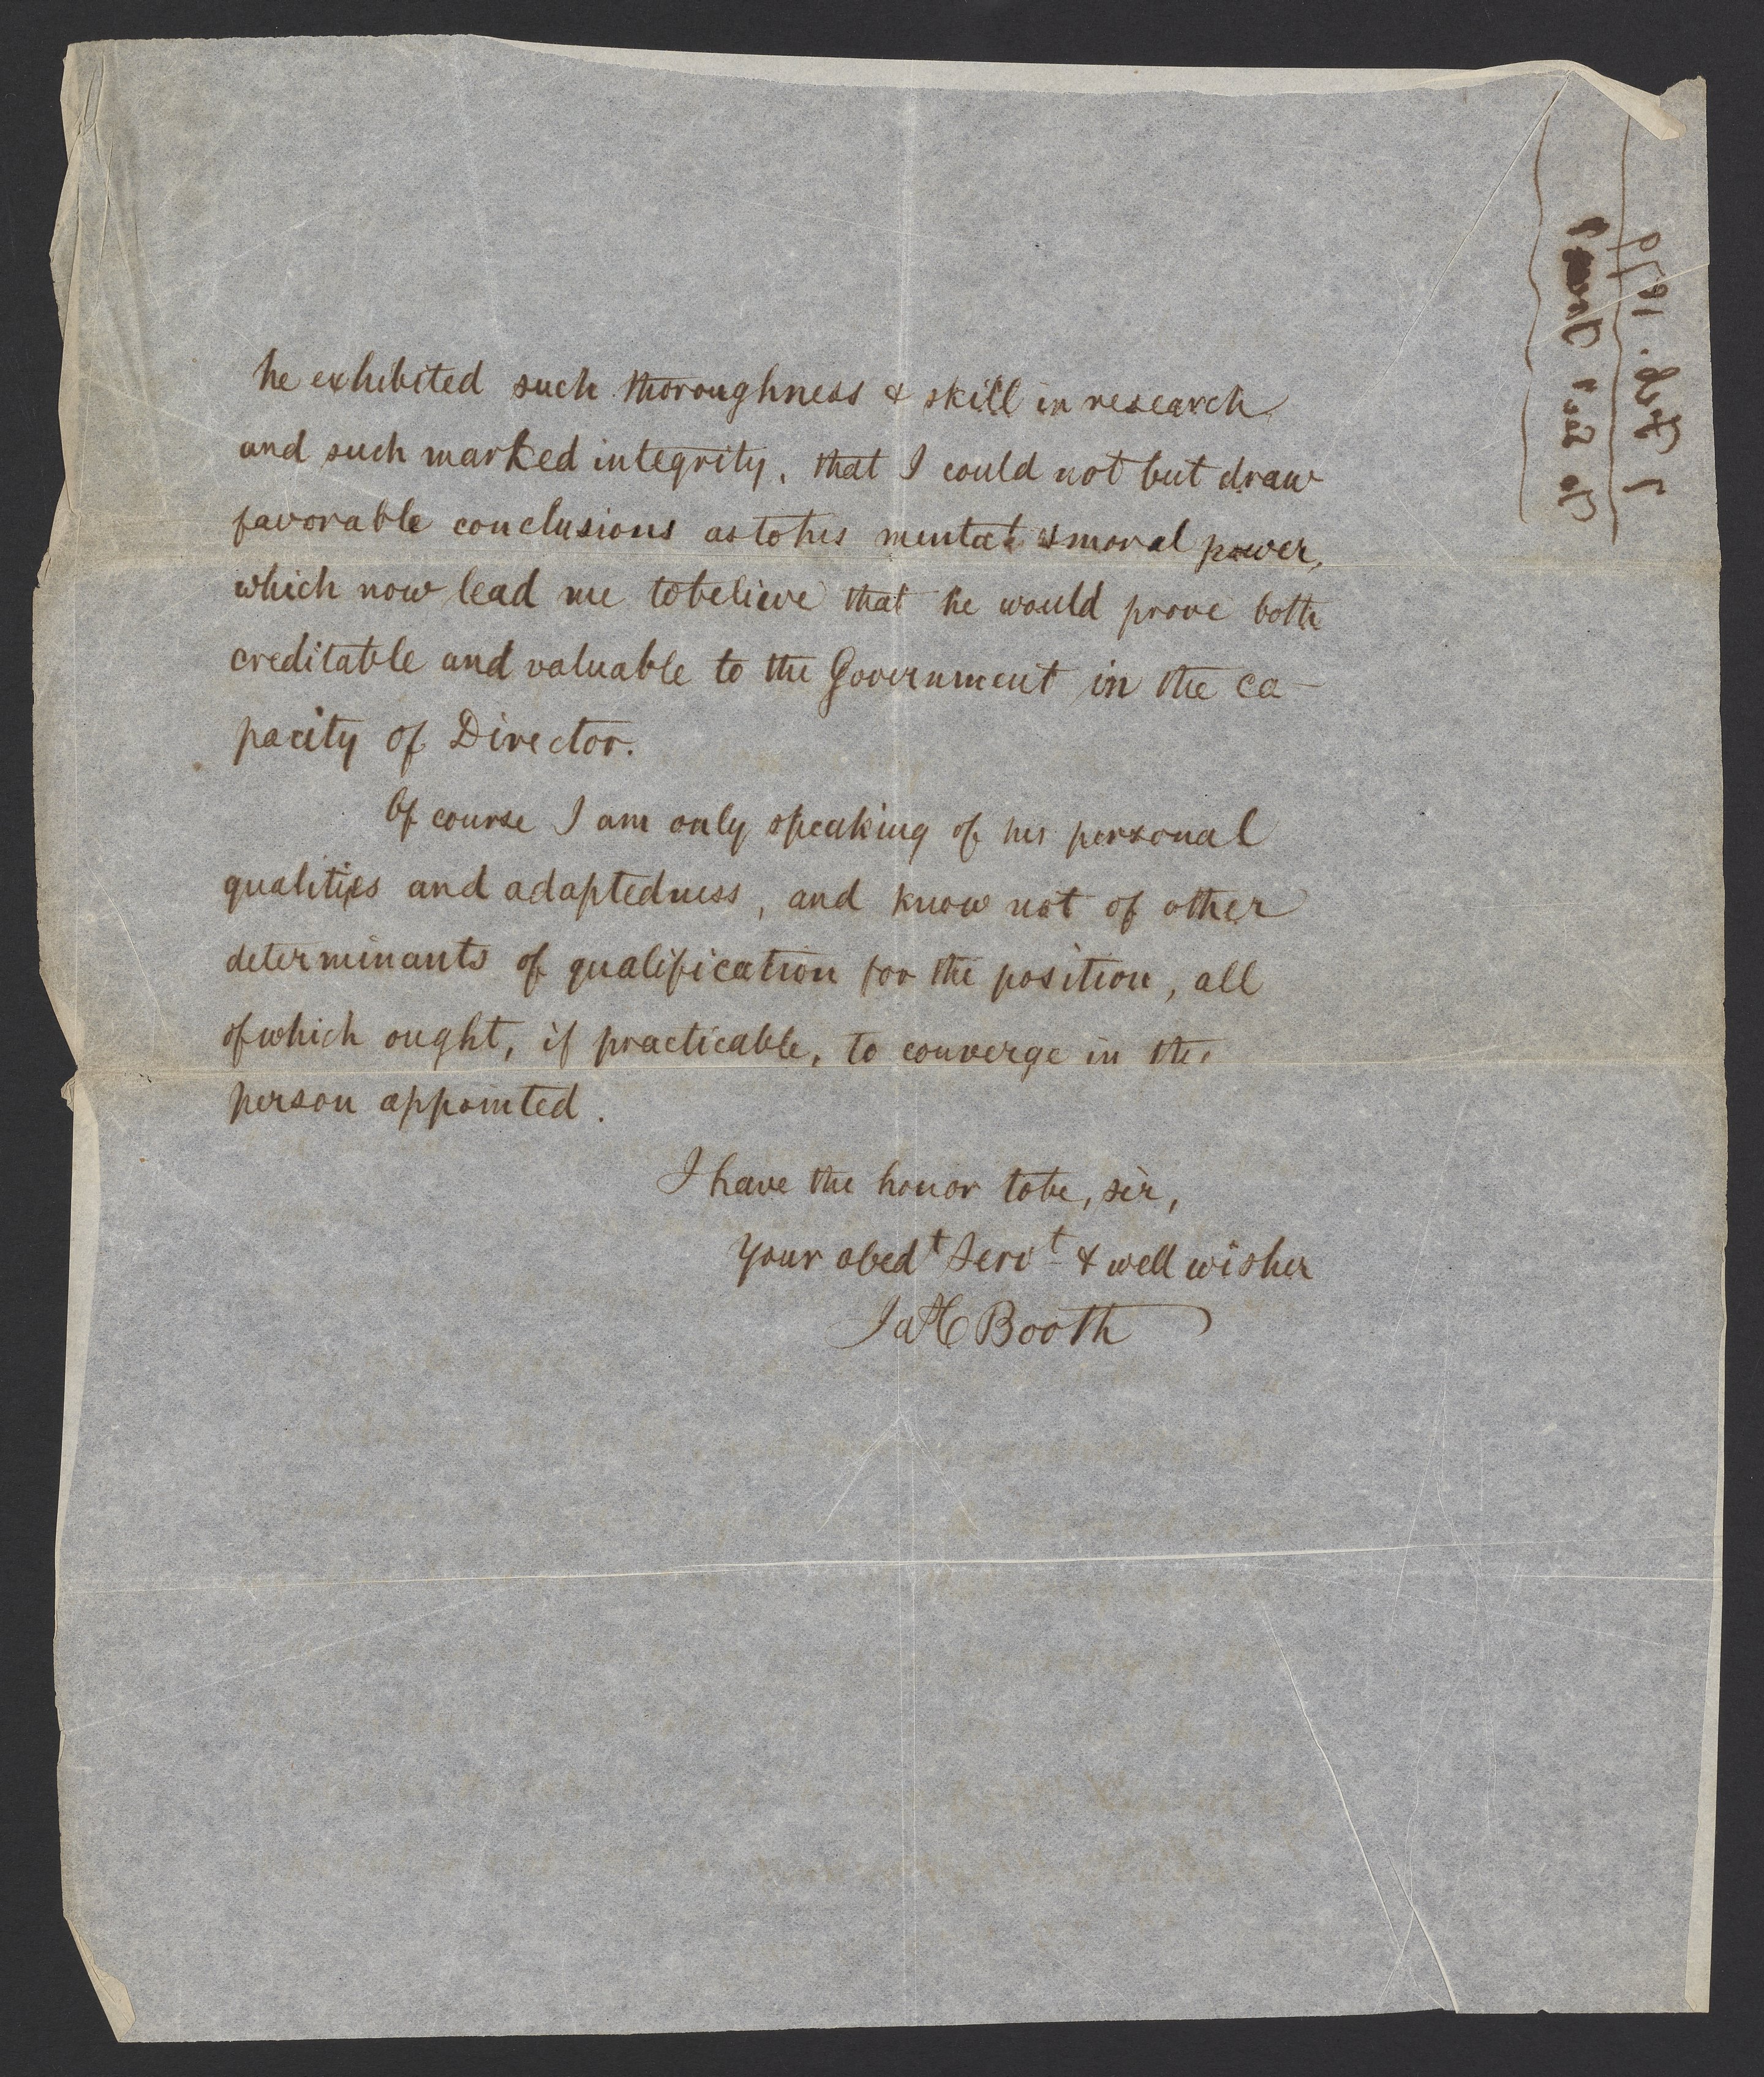 he exhibited such thoroughness & skill in research
and such marked integrity, that I could not but draw
favorable conclusions as to his mental & moral power,
which now lead me to believe that he would prove both
creditable and valuable to the Government in the ca-
pacity of Director.
Of course I am only speaking of his personal
qualities and adaptedness, and know not of other
determinants of qualification for the position, all
of which ought, if practicable, to converge in the
person appointed.
I have the honor to be, sir,
Your obedt Servt & well wisher
Ja C Booth